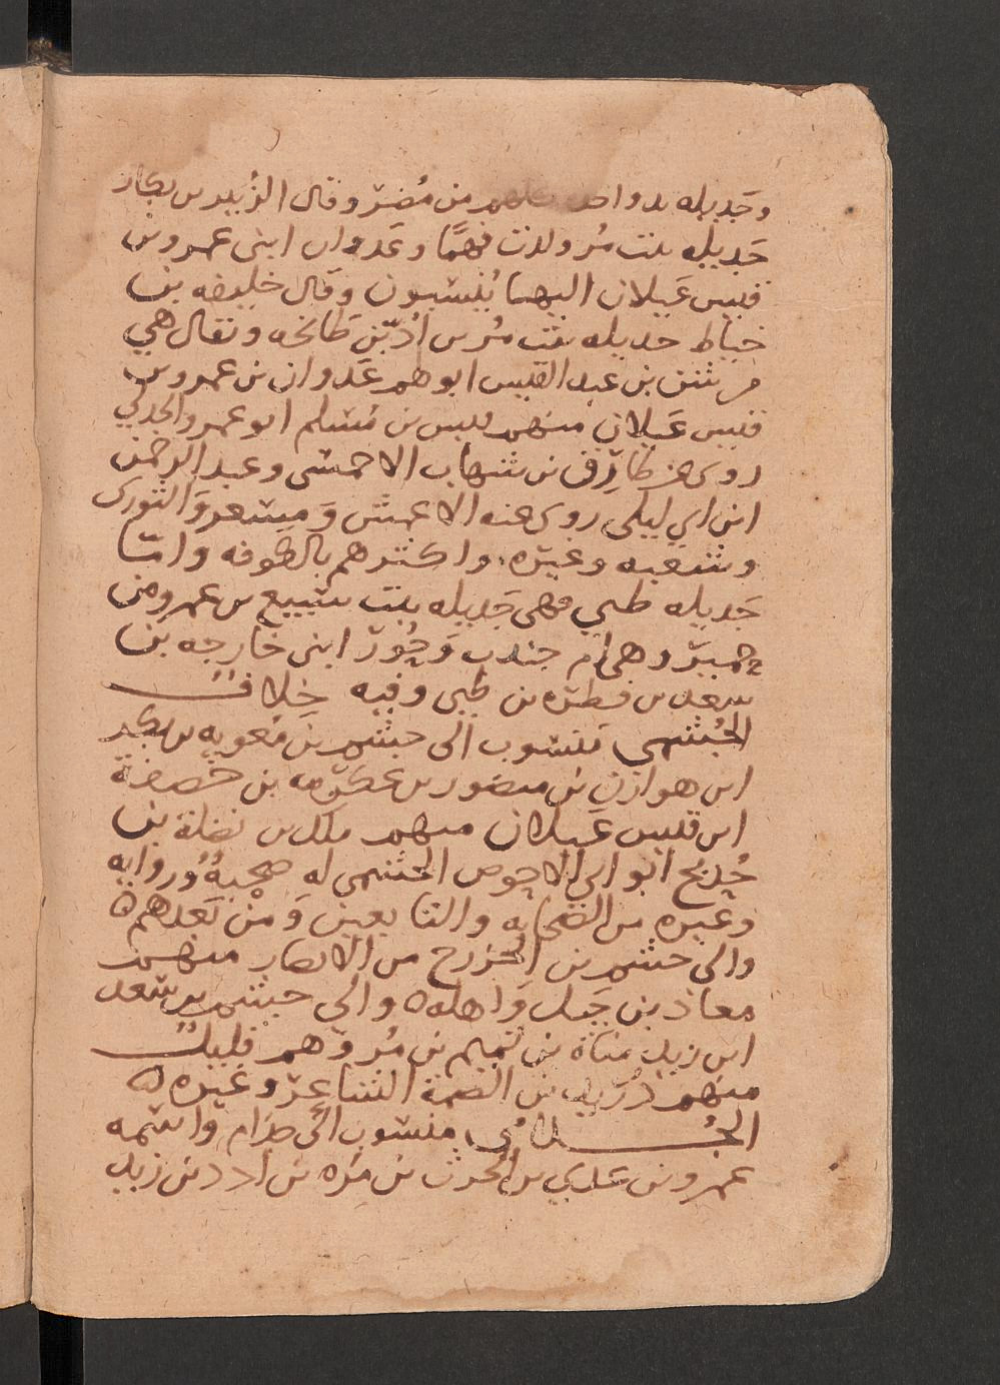 وجديله بن واحد كلهم من مُضَرَ وقال الزُبير بن بكار
جَديله بنت مُر ولدت فهمًا وعَدوان ابنى عمرو بن
قيس عَيلان اليها يُنْسَبون وقال خليفه بن
خياط جديله بنت مُر بن اُدّ بن طَابخه ويقال هي
بن عبد القيس ابوهم عَدوان بن عمرو بن
قيس عَيلان منهم قيس بن مُسْلم ابو عمرو الجدلي
روى عن طارِق بن شهاب الاحمسى وعبد الرحمن
ابن ابي ليلى روى عنه الاعمش وَمِسْعر وَالثورى
وشعبه وغيره. واكثرهم بالكوفه وامّا
جَديله طي فهى جَديله بنت سبيع بن عمرو من
حميَر وهى ام جندب وَحُوْر ابنى خارجه بن
سعد بن فطره بن طى وفيه خِلافٌ
الجُشمي منسوب الى جشم بن مُعويه بن بكر
ابن هوازن بن منصور بن عكرمه بن خصفة
ابن قيس عَيلان منهم ملك بن نضلة بن
خُديج ابو ابي الاحوص الجشمى له صُحْبةٌ وُروايه
وغيره من الصَحابه والتابعين وَمنْ بَعدهم ه
والى جشم بن الخزرج من الانصار منهم
معاذ بن جَبل وَاهله ه والى جشم بن سعد
ابن زيد مناة بن تميم بن مُر وَهم قليلٌ
منهم دُرَيد بن الصمة الشاعِر وغيره ه
الجُـــذامُي منسوب الىَ جذام واسمه
عمرو بن عَدي بن الحرث بن مُره بن ادد بن زيد